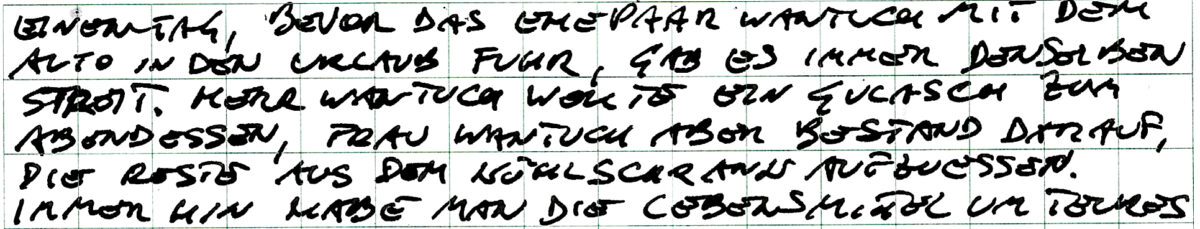 EINEN TAG, BEVOR DAS EHEPAAR WANTUCH MIT DEM
AUTO IN DEN URLAUB FUHR, GAB ES IMMER DENSELBEN
STREIT. HERR WANTUCH WOLLTE EIN GULASCH ZUM
ABENDESSEN, FRAU WANTUCH ABER BESTAND DARAUF,
DIE RESTE AUS DEM KÜHLSCHRANK AUFZUESSEN.
IMMERHIN HABE MAN DIE LEBENSMITTEL UM TEURES